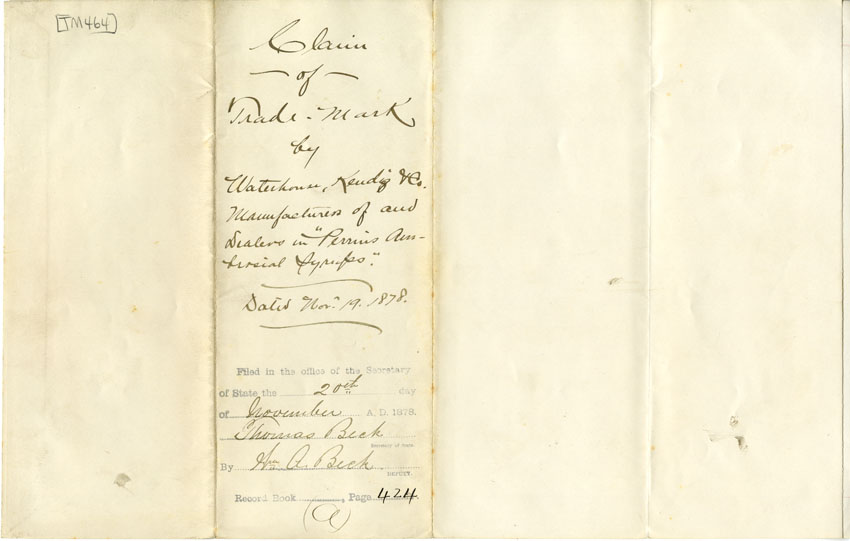 [TM464]
Claim
of
Trade-Mark
by
Waterhouse, Kendig & Co.
Manufacturers of and
Dealers in "Perrins Am-
brosial Syrups".
Dated Nov. 19. 1878.
Filed in the office of the Secretary
of State the 20th day
of November A. D. 1878.
Thomas Beck
Secretary of State
By Wm A. Beck
DEPUTY.
Record Book, Page 424
(a)